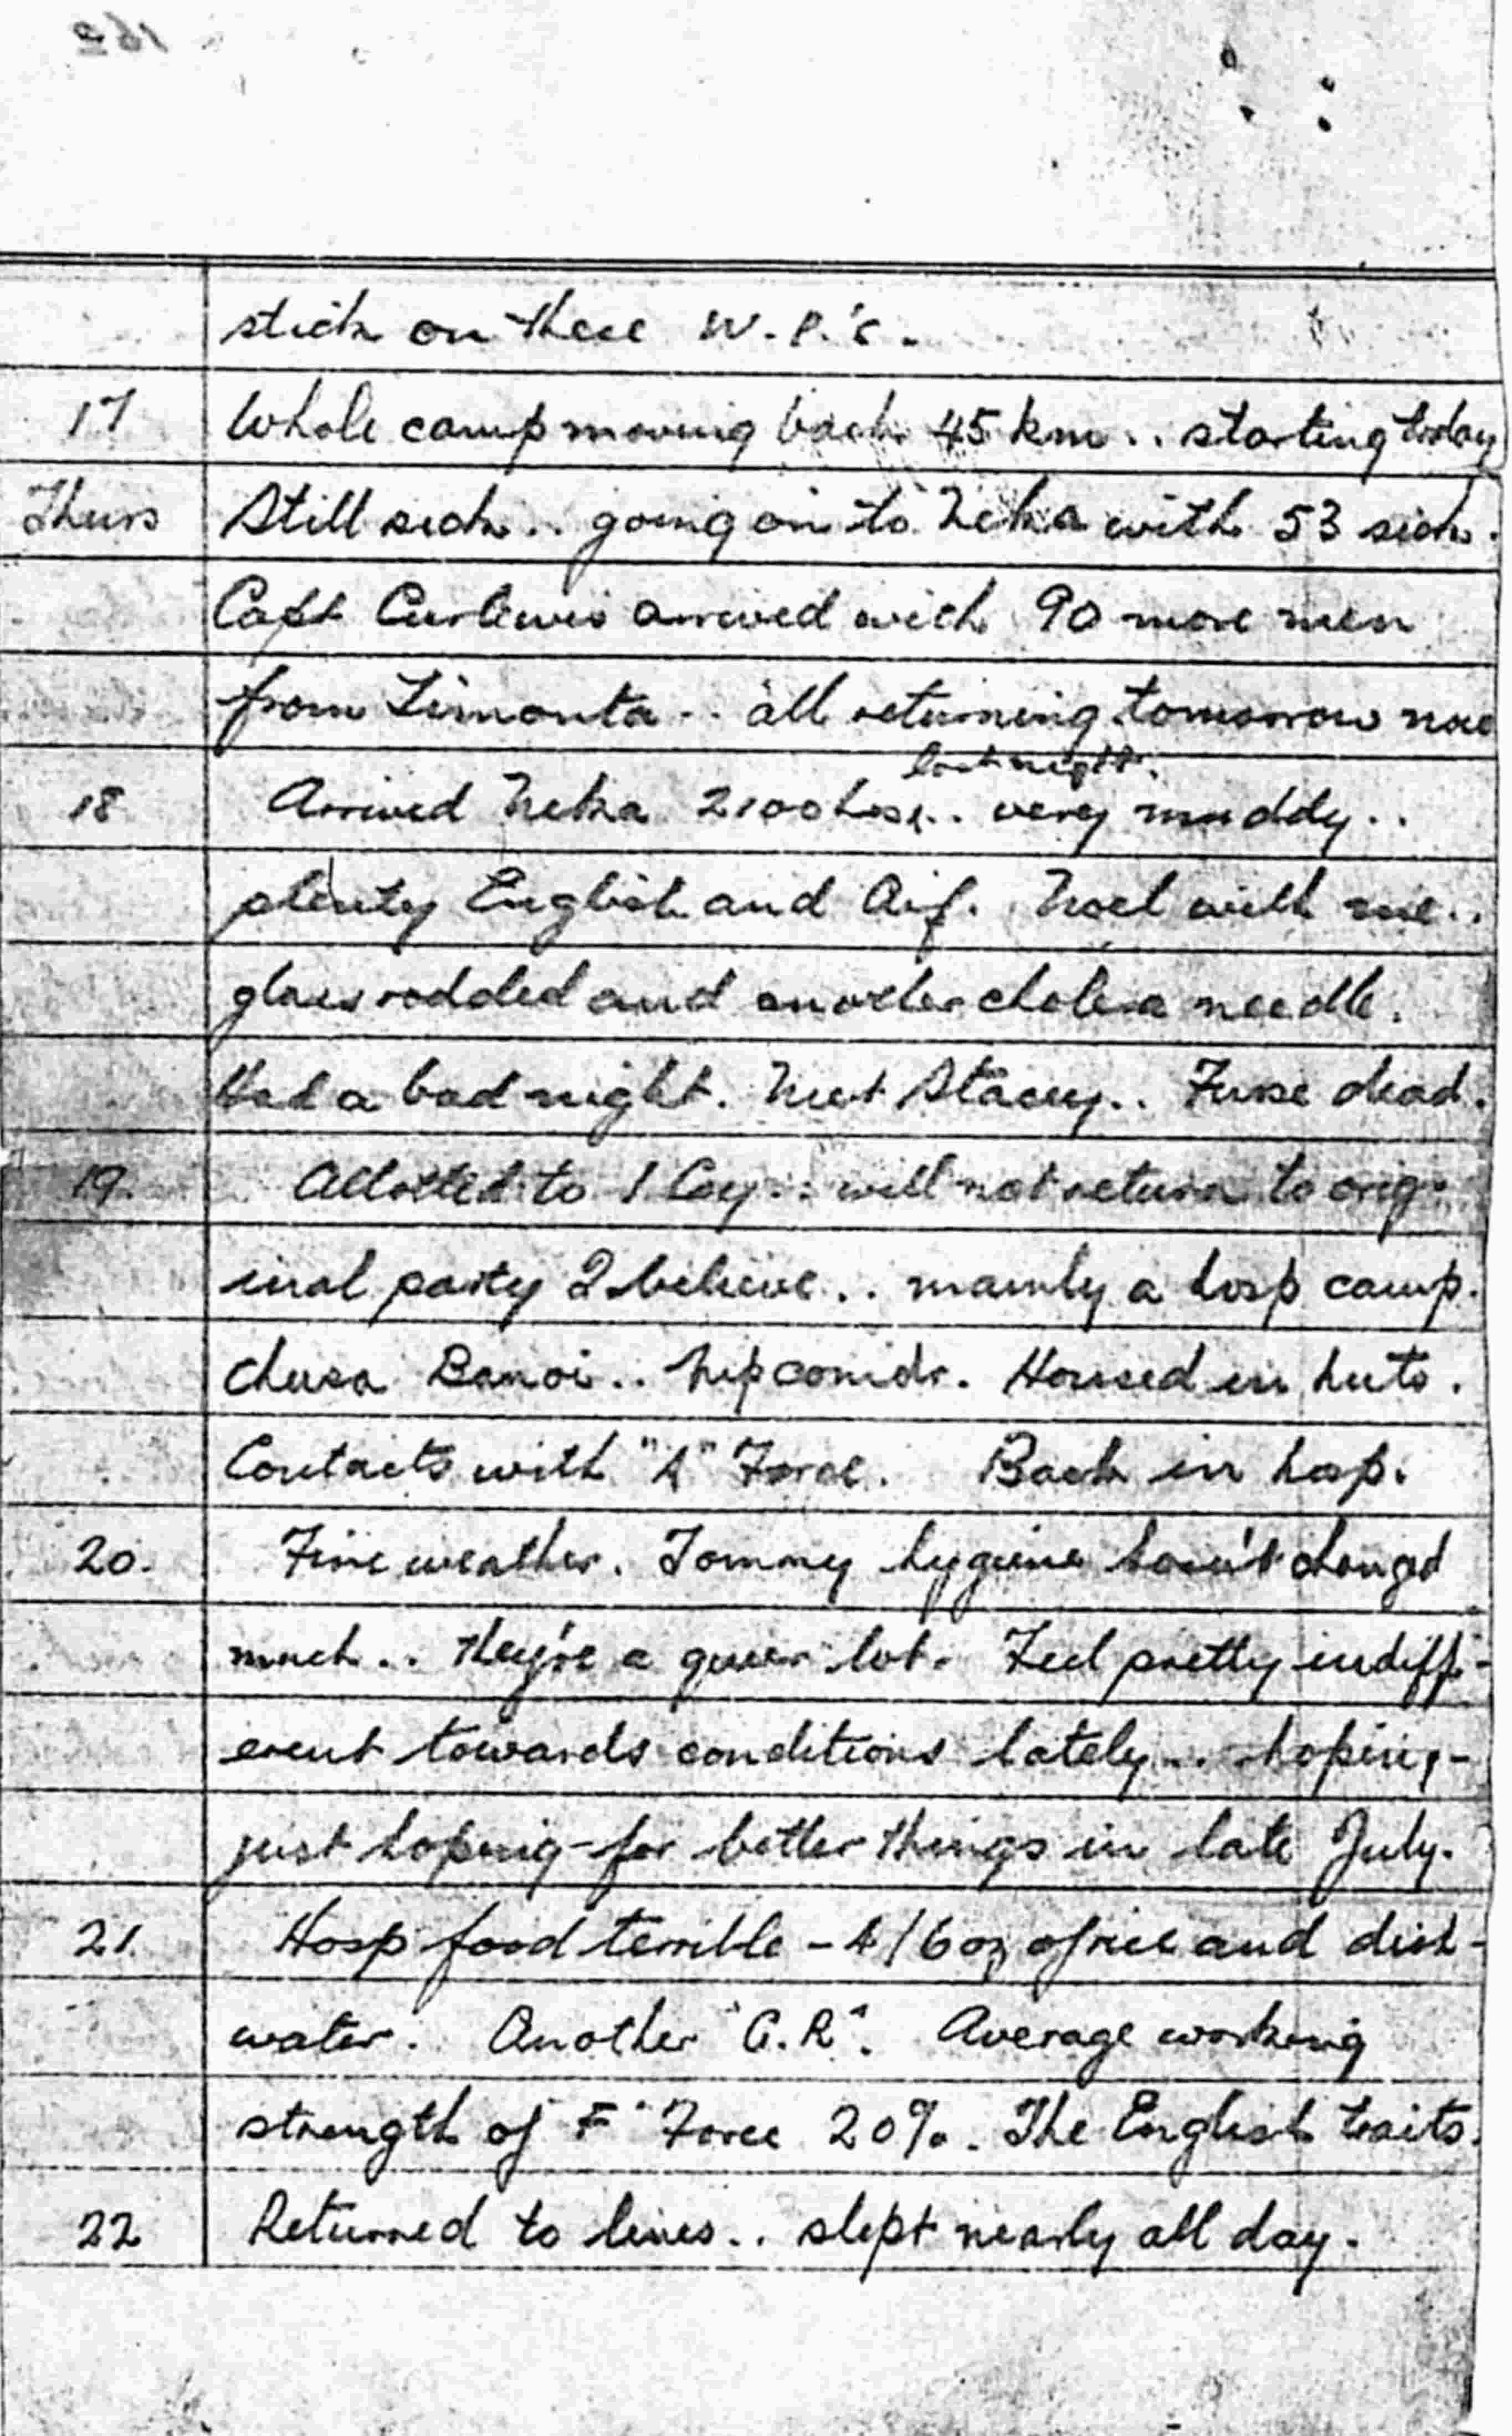 162
stick on these W.P.'s.
17 Whole camp moving back 45 km.. starting today
Thurs Still sick.. going on to Neka with 53 sick.
Capt Curlewis arrived with 90 more men
from Timonta.. all returning tomorrow
last night.
18 Arrived Neka 2100 hrs.. very muddy..
plenty English and Aif. Noel with me..
glass rodded and another cholera needle.
Had a bad night. Met Stacey.. Fuse dead.
19. Allotted to 1 Coy.. will not return to orig-
inal party I believe.. mainly a hosp camp.
Banoi.. Nip comdr. Housed in huts.
Contacts with "A" Force. Back in hosp.
20. Fine weather. Tommy hygiene hasn't changed
much.. they're a queer lot. Feel pretty indiff-
erent towards conditions lately... hoping-
just hoping-for better things in late July.
21. Hosp food terrible - 4/6 oz of rice and dish-
water. Another "G.R". Average working
strength of F" Force 20%. The English traits.
22 Returned to lines.. slept nearly all day.